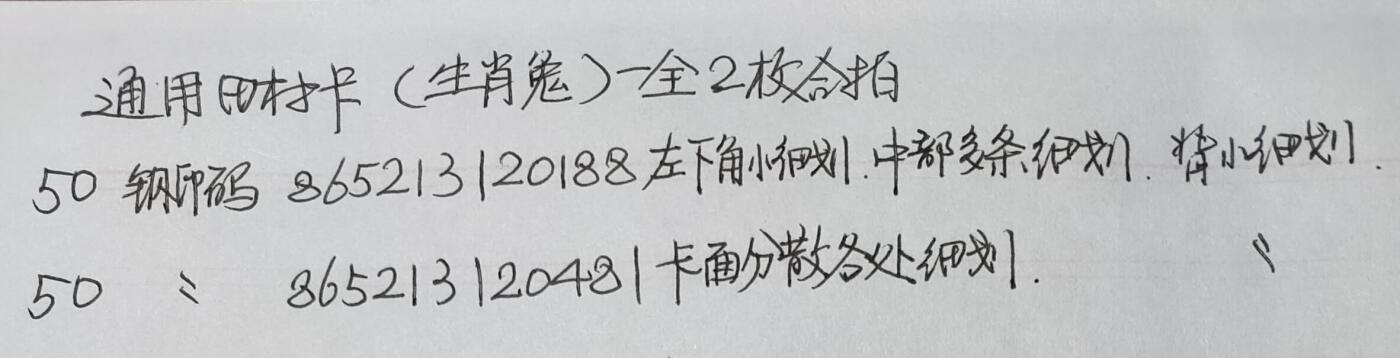 通用田村卡（生肖兔）一全2枚合拍
50 钢印码 865213120188左下角小细划.中部多条细划.背小细划.
50 〃 865213120481卡面分散各处细划. 〃